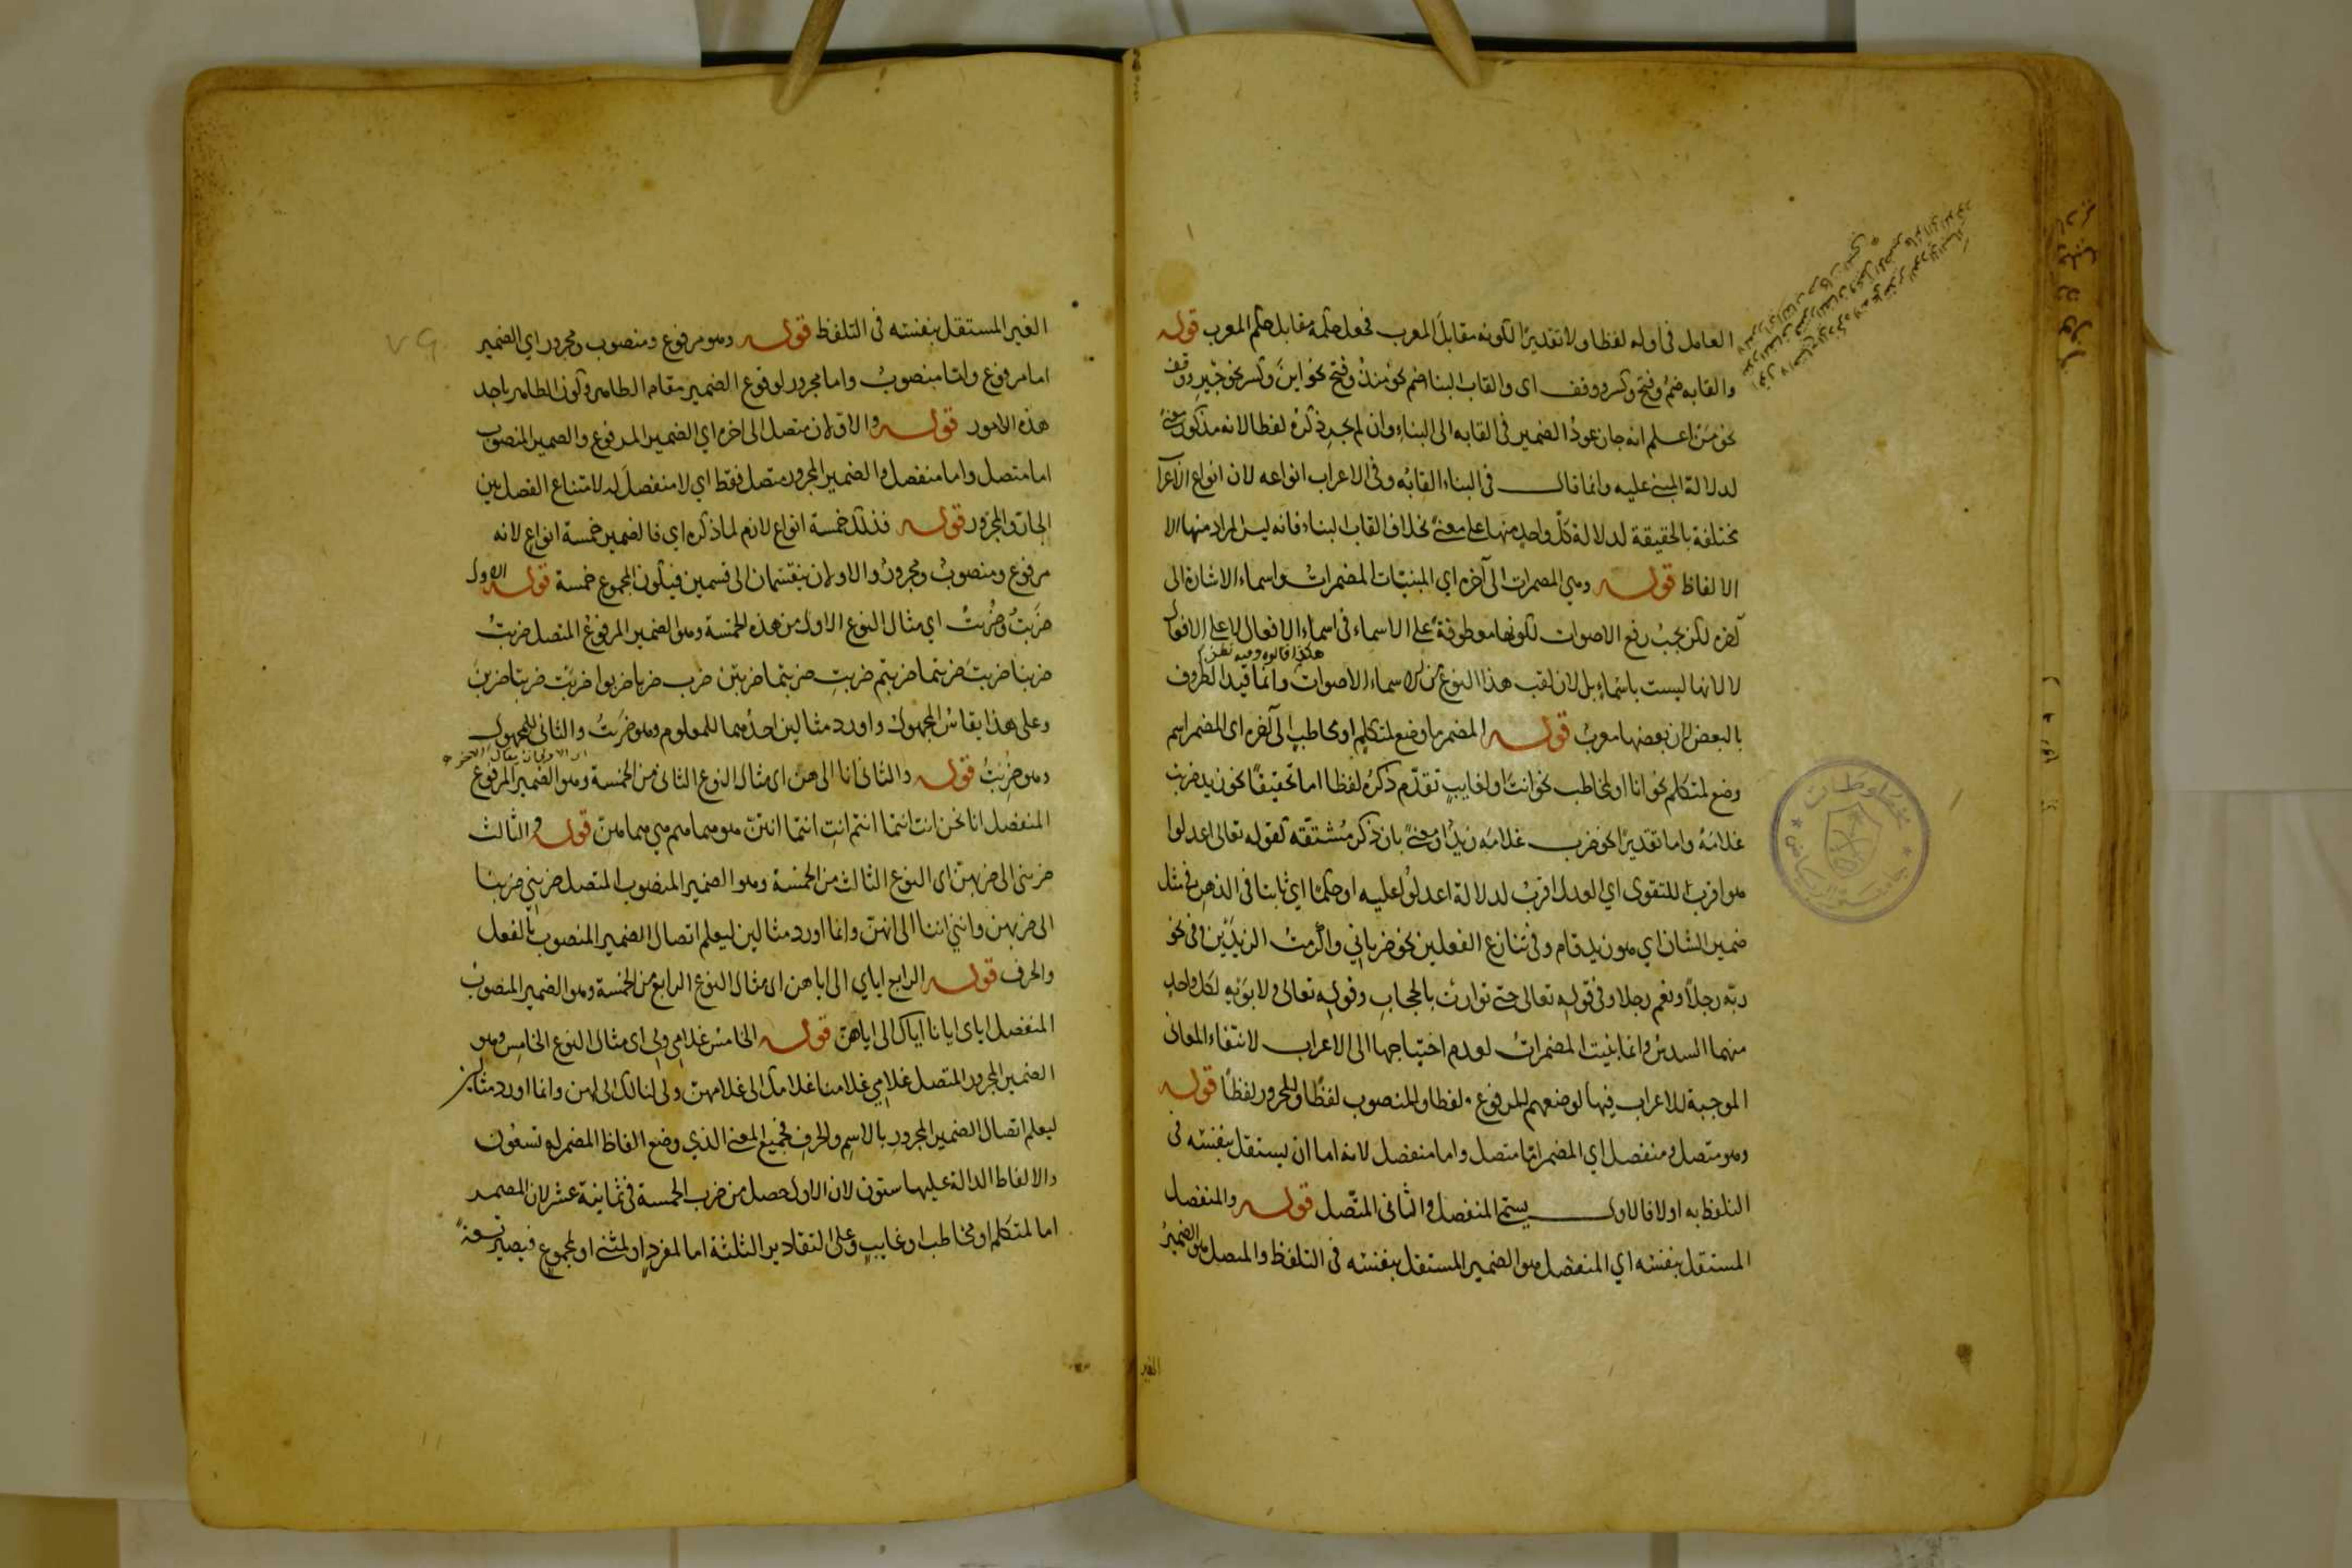 العامل فى اوله لفظا ولا تقديرًا لكونه مقابلَ المعرب فجعل حكمه مقابل حكم المعرب قوله
والقابه ضمٌ وفتح وكسر ووقف اى والقاب البناء ضم نحو منذُ وفتح نحو اينَ وكسر نحو جَيْرِ ووقف
نحو مَنْ اعلم انه جاز عودُ الضمير فى القابه الى البناء وان لم يجرِ ذكرُه لفظا لانه مذكور معنًى
لدلالة المبنى عليه وانما قال فى البناء القابُه وفى الاعراب انواعه لان انواع الاعراب
مختلفة بالحقيقة لدلالة كلّ واحدٍ منها على معنًى بخلاف القاب البناء فانه ليس المراد منها الا
الالفاظ قوله وهي المضمرات الى آخره اي المبنيّات المضمراتُ واسماء الاشارة الى
آخره لكن يجبُ رفع الاصوات لكونها معطوفةً على الاسماء فى اسماء الافعال لا على الافعال
هكذا قالوه وفيه نظر
لا لانها ليست باسْماءٍ بل لان لقب هذا النوع من الاسماء الاصوات وانما قيد الظروف
بالبعض لان بعضها معربٌ قوله المضمر ما وضع لمتكلمٍ او مخاطبٍ الى آخره اى المضمر اسم
وضع لمتكلم نحو انا او لمخاطب نحو انتَ او لغايبٍ تقدّم ذكرُه لفظا اما تحقيقًا نحو زيد ضربت
غلامَهُ واما تقديرًا نحو ضرب غلامَه زيدٌ او معنًى بان ذكر مُشتقّه كقوله تعالى اعدلوا
هو اقربُ للتقوى اي العدل اقربُ لدلالة اعدلُوا عليه او حكمًا اي ثابتا فى الذهن فى مثل
ضمير الشان اي هو زيد قام وفى تنازع الفعلين نحو ضرباني واكرمتُ الزيدَيْن وفى نحو
ربّه رجلاً ونعم رجلا وفى قوله تعالى حتى توارتْ بالحجابِ وقوله تعالى ولابويْهِ لكل واحدٍ
منهما السدسُ وانما بُنيت المضمراتُ لعدم احتياجها الى الاعراب لانتفاء المعانى
الموجبة للاعراب فيها لوضعهم للمرفوع لفظا وللمنصوب لفظًا وللمجرور لفظًا قوله
وهو متصل ومنفصل اي المضمر امّا متصل واما منفصل لانه اما ان يستقل بنفسْه فى
التلفظ به اولا فالاول يسمّى المنفصل والثانى المتّصل قوله والمنفصل
المستقل بنفسْه اي المنفصل هو الضمير المستقل بنفسْه فى التلفظ والمتصل هو الضميرُ
الغير
الغير المستقل بنفسْه فى التلفظ قوله وهو مرفوع ومنصوب ومجرور اي الضمير
اما مرفوع وامّا منصوبٌ واما مجرور لوقوع الضمير مقام الظاهر وكون الظاهر باحد
هذه الامور قوله والاوّلان متصل الى اخره اي الضمير المرفوع والضمير المنصوب
اما متصل واما منفصل والضمير المجرور متصل فقط اي لا منفصلَ له لامتناع الفصل بين
الجارّ والمجرور قوله فذلك خمسة انواع لازم لما ذكره اي فالضمير خمسة انواعٍ لانه
مرفوع ومنصوبٌ ومجرورٌ والاولان ينقسمان الى قسمين فيكون المجموع خمسة قوله الاول
ضَرَبْتُ وضُرِبْتُ اي مثال النوع الاول من هذه الخمسة وهو الضمير المرفوعُ المتصل ضربتُ
ضربنا ضربتَ ضربتما ضربتم ضربتِ ضربتما ضربتنّ ضرب ضربا ضربوا ضربَتْ ضربتا ضربنَ
وعلى هذا يقاسُ المجهول واورد مثالين احدُهما للمعلوم وهو ضَرَبْتُ والثانى للمجهول
وهو ضُرِبْتُ قوله والثانى انا الى هنّ اى مثال النوع الثانى من الخمسة وهو الضمير المرفوع
المنفصل انا نحن انتَ انتما انتم انتِ انتما انتنّ هو هما هم هي هما هنّ قوله والثالث
ضربنى الى ضربهنّ اى النوع الثالث من الخمسة وهو الضمير المنصوب المتصل ضربني ضربنا
الى ضربهن وانني اننا الى انهنّ وانما اورد مثالين ليعلم اتصال الضمير المنصوب بالفعل
والحرف قوله الرابع اياي الى اياهن اى مثال النوع الرابع من الخمسة وهو الضمير المنصوبُ
المنفصل اياى ايانا اياك الى اياهنّ قوله الخامسُ غلامي ولي اى مثال النوع الخامس وهو
الضمير المجرور المتصل غلامي غلامنا غلامك الى غلامهنّ ولى لنا لك الى لهن وانما اورد مثالين
ليعلم اتصال الضمير المجرورِ بالاسمِ والحرفِ فجميع المعنى الذي وضع الفاظ المضمر له تسعُون
والالفاظ الدالة عليها ستون لان الاول حصل من ضرب الخمسة فى ثمانية عشر لان المضمر
اما لمتكلم او مخاطب او غايبٍ وعلى التقادير الثلثة اما لمفردٍ او لمثنى او لمجموع فيصير تسعةً